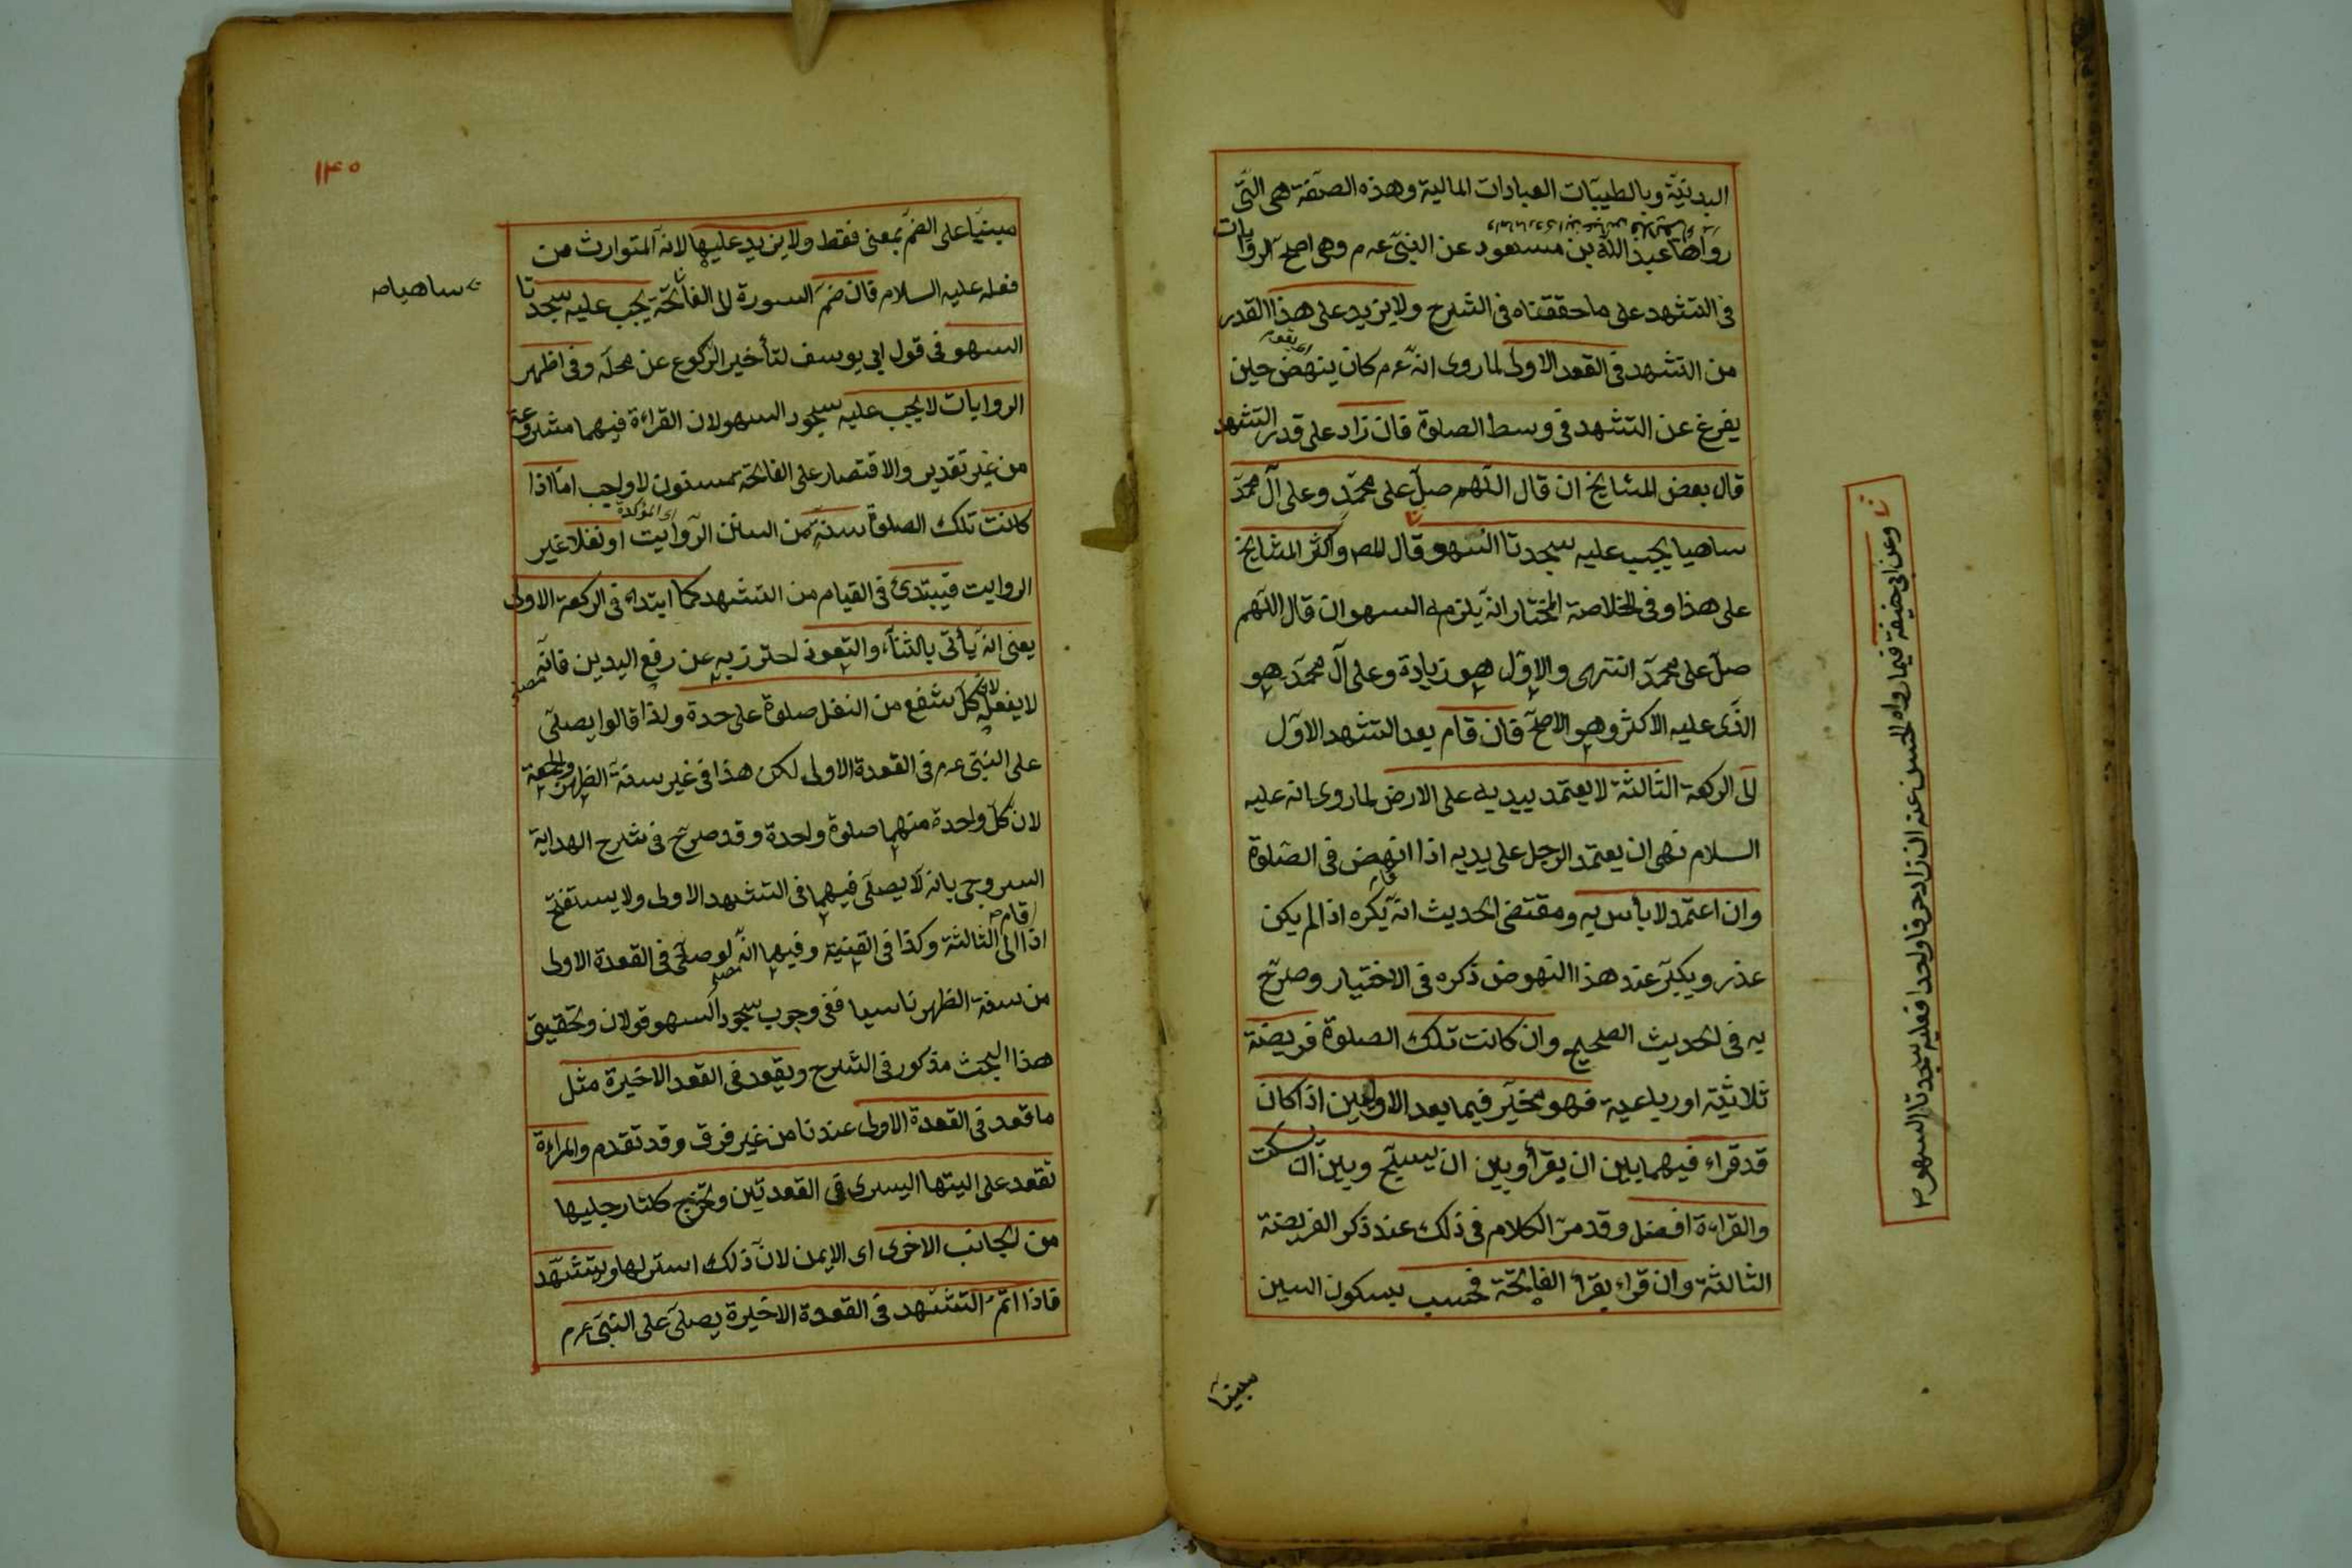 البدنيّة وبالطيبات العبادات المالية وهذه الصفة هى التى
رواها عبد الله بن مسعود عن النبى عرم وهى اصح الروايات
فى التشهد على ما حققناه فى الشرح ولا يزيد على هذا القدر
من التشهد فى القعد الاولى لما روى انه عرم كان ينهض حين
يفرغ عن التشهد فى وسط الصلوة فان زاد على قدر التشهد
قال بعض المشايخ ان قال اللهم صل على محمد وعلى آل محمد
ساهيا يجب عليه سجدتا السهو قال المص واكثر المشايخ
على هذا وفى الخلاصة المختار انه يلزمه السهو ان قال اللهم
صل على محمد انتهى والاول هو زيادة وعلى آل محمد هو
الذى عليه الاكثر وهو الاصح فان قام بعد التشهد الاول
الى الركعة الثالثة لا يعتمد بيديه على الارض لما روى انه عليه
السلام نهى ان يعتمد الرجل على يديه اذا انهض فى الصلوة
وان اعتمد لا بأس به ومقتضى الحديث انه يكره اذا لم يكن
عذر ويكبر عند هذا النهوض ذكره فى الاختيار وصرح
به فى الحديث الصحيح وان كانت تلك الصلوة فريضة
ثلاثية او رباعية فهو مخير فيما بعد الاوليين اذا كان
قد قراء فيهما بين ان يقرأ وبين ان يسبح وبين ان يسكت
والقراءة افضل وقد مر الكلام فى ذلك عند ذكر الفريضة
الثالثة وان قراء يقرأ الفاتحة فحسب بسكون السين
مبنيا
وعن ابى حنيفة فيما رواه الحسن عنه ان زاد حرفا واحدا فعليه سجدتا السهو
١٤٠
مبنيا على الضم بمعنى فقط ولا يزيد عليها لانه المتوارث من
فعله عليه السلام فان ضم السورة الى الفاتحة يجب عليه سجدتا
ساهيا
السهو فى قول ابى يوسف لتأخير الركوع عن محله وفى اظهر
الروايات لا يجب عليه سجود السهو لان القراءة فيهما مشروعة
من غير تقدير والاقتصار على الفاتحة مسنون لا واجب اما اذا
اى المؤكدة
كانت تلك الصلوة سنة من السنن الروايت او نفلا غير
الروايت فيبتدئ فى القيام من التشهد كما ابتداء فى الركعة الاولى
يعنى انه يأتى بالثناء والتعوذ احترز به عن رفع اليدين فانه
لا يفعله لان كل شفع من النفل صلوة على حدة ولذا قالوا يصلى
على النبى عرم فى القعدة الاولى لكن هذا فى غير سنة الظهر والجمعة
لان كل واحدة منهما صلوة واحدة وقد صرح فى شرح الهداية
السروجى بانه لا يصلى فيهما فى التشهد الاولى ولا يستفتح
اذا قام الى الثالثة وكذا فى القنية وفيها انه لو صلى فى القعدة الاولى
من سنة الظهر ناسيا ففى وجوب سجود السهو قولان وتحقيق
هذا البحث مذكور فى الشرح ويقعد فى القعد الاخيرة مثل
ما قعد فى القعدة الاولى عندنا من غير فرق وقد تقدم والمراءة
تقعد على اليتها اليسرى فى القعدتين وتخرج كلتا رجليها
من الجانب الاخرى اى الايمن لان ذلك استر لها ويتشهد
فاذا اتم التشهد فى القعدة الاخيرة يصلى على النبى عرم